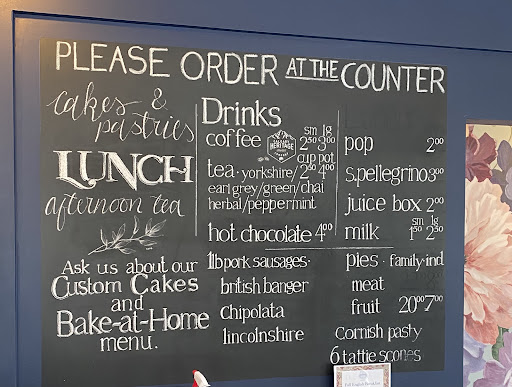 PLEASE ORDER AT THE COUNTER
cakes &
pastries
LUNCH
afternoon tea
Ask us about our
Custom Cakes
and
Bake-at-Home
menu.
Drinks
sm lg
coffee 2⁵⁰ 3⁰⁰
HERITAGE
cup pot
tea · yorkshire/ 2⁵⁰ 4⁰⁰
earl grey/green/chai
herbal/peppermint
hot chocolate 4⁰⁰
pop 2⁰⁰
s.pellegrino 3⁰⁰
juice box 2⁰⁰
sm lg
milk 1⁵⁰ 2⁵⁰
1lb pork sausages·
british banger
Chipolata
lincolnshire
pies · family·ind
meat
fruit 20⁰⁰ 7⁰⁰
Cornish pasty
6 tattie scones
Full English Breakfast